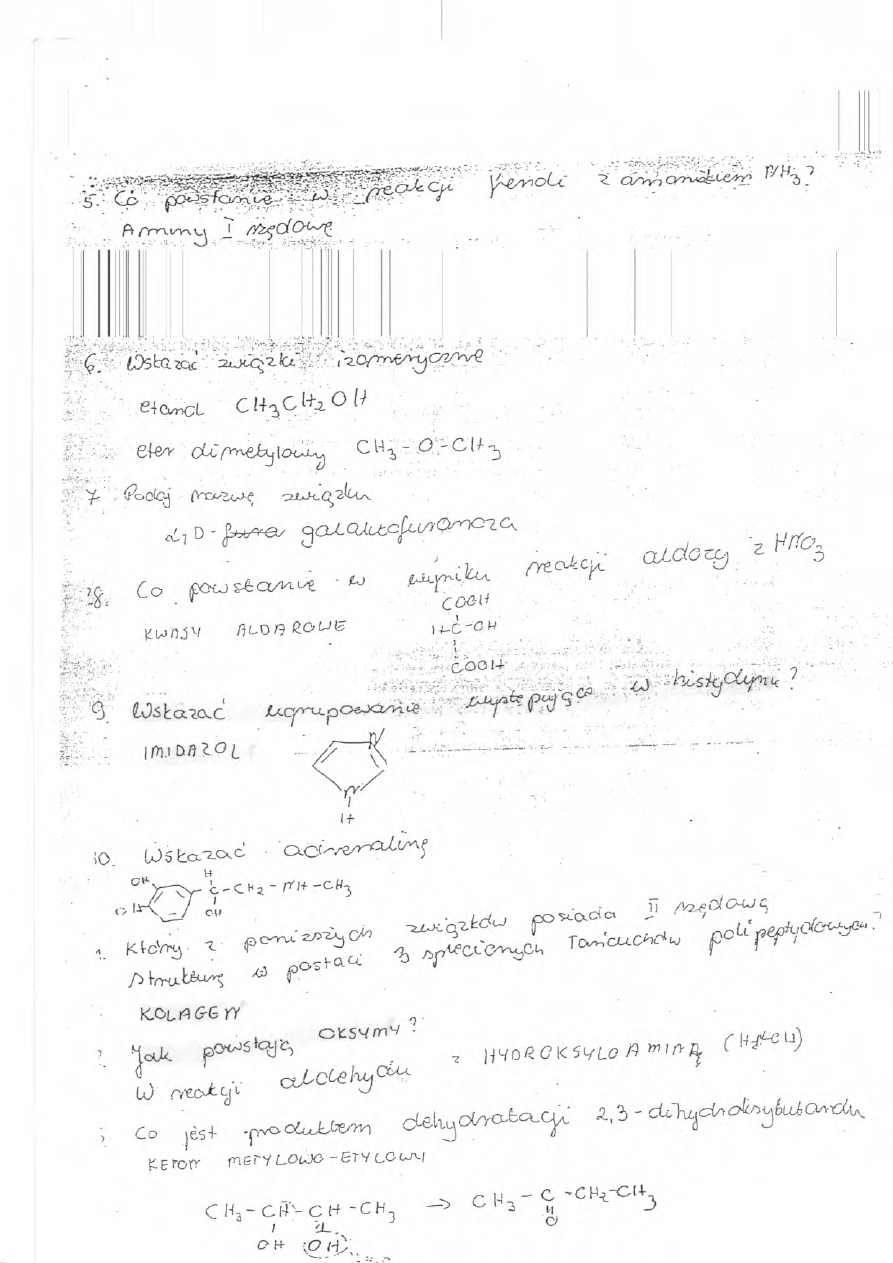 5. Co powstanie w reakcji fenoli z amoniakiem NH3?
Aminy I rzędowe
6. Wskazać związki izomeryczne
etanol CH3CH2OH
eter dimetylowy CH3-O-CH3
7. Podaj nazwę związku
α,D- galaktofuranoza
8. Co powstanie w wyniku reakcji aldozy z HNO3
KWASY ALDAROWE
COOH
H-C-OH
COOH
9. Wskazać ugrupowanie występujące w histydynie?
IMIDAZOL
N
N
H
10. Wskazać adrenalinę
H
OH
OH
C-CH2-NH-CH3
OH
1. Który z poniższych związków posiada II rzędową
strukturę w postaci 3 splecionych łańcuchów polipeptydowych?
KOLAGEN
Jak powstają OKSYMY?
W reakcji aldehydu z HYDROKSYLOAMINĄ
Co jest produktem dehydratacji 2,3-dihydroksybutanolu
KETON METYLOWO-ETYLOWY
CH3-CH-CH-CH3 → CH3-C-CH2-CH3
OH OH O